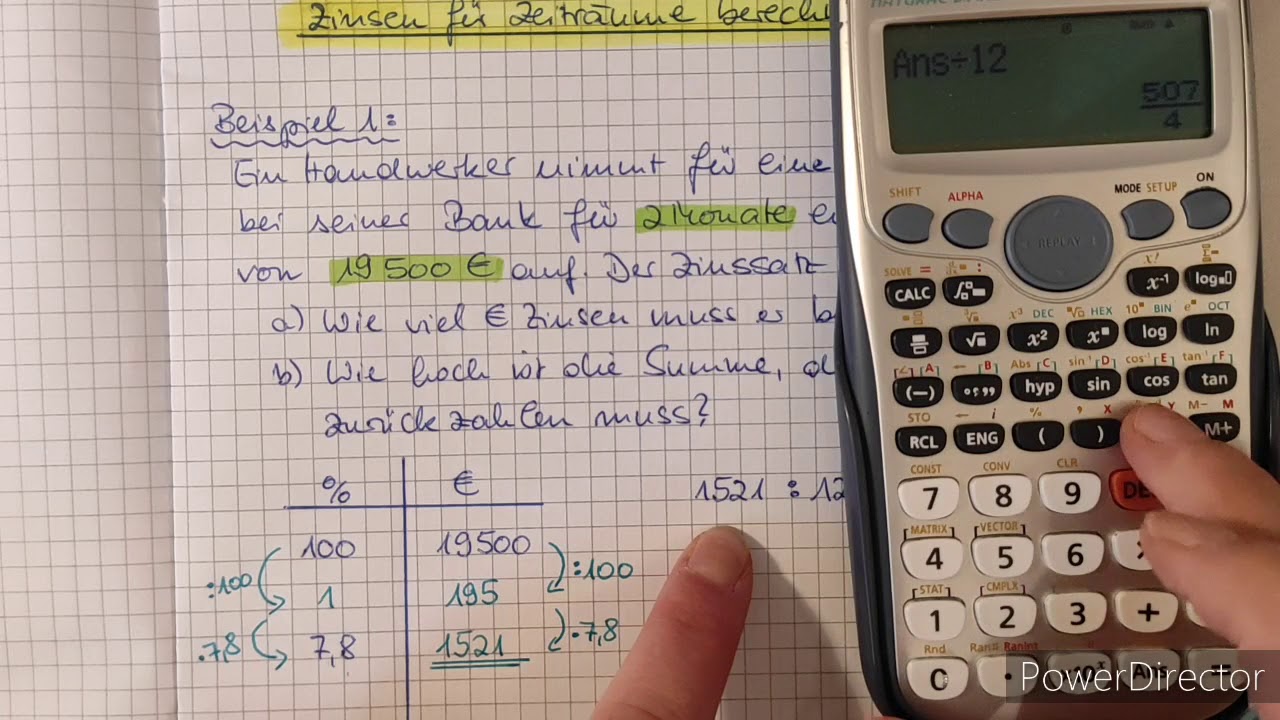 Zinsen für Zeiträume berech
Beispiel 1:
Ein Handwerker nimmt für eine
bei seiner Bank für 2 Monate
von 19 500 € auf. Der Zinssatz
a) Wie viel € Zinsen muss er b
b) Wie hoch ist die Summe, d
zurück zahlen muss?
% €
1521 : 12
100 19500
:100 :100
1 195
·7,8 ·7,8
7,8 1521
Ans÷12
507
4
SHIFT ALPHA MODE SETUP ON
REPLAY
SOLVE = x!
CALC x⁻¹ log
x³ DEC HEX 10 BIN e OCT
x² log ln
A B Abs C sin⁻¹ D cos⁻¹ E tan⁻¹ F
(−) hyp sin cos tan
STO ← i % , X Y M− M
RCL ENG ( ) M+
CONST CONV CLR
7 8 9 DE
MATRIX VECTOR
4 5 6
STAT CMPLX
1 2 3 +
Rnd Ran# RanInt
0 . Ans =
PowerDirector